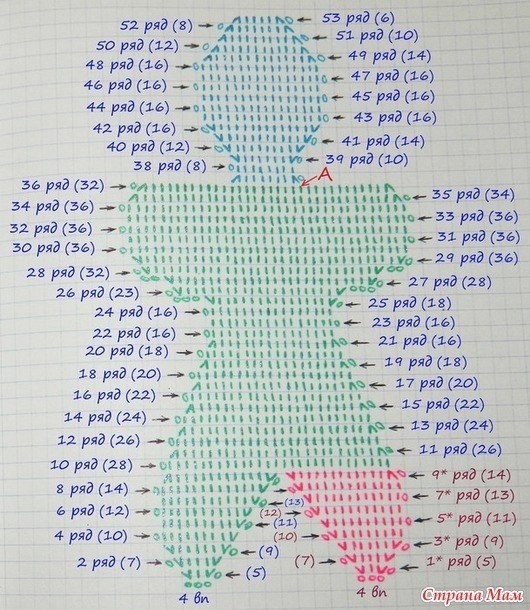 52 ряд (8) 53 ряд (6)
50 ряд (12) 51 ряд (10)
48 ряд (16) 49 ряд (14)
46 ряд (16) 47 ряд (16)
44 ряд (16) 45 ряд (16)
42 ряд (16) 43 ряд (16)
40 ряд (12) 41 ряд (14)
38 ряд (8) 39 ряд (10)
A
36 ряд (32) 35 ряд (34)
34 ряд (36) 33 ряд (36)
32 ряд (36) 31 ряд (36)
30 ряд (36) 29 ряд (36)
28 ряд (32) 27 ряд (28)
26 ряд (23) 25 ряд (18)
24 ряд (16) 23 ряд (16)
22 ряд (16) 21 ряд (16)
20 ряд (18) 19 ряд (18)
18 ряд (20) 17 ряд (20)
16 ряд (22) 15 ряд (22)
14 ряд (24) 13 ряд (24)
12 ряд (26) 11 ряд (26)
10 ряд (28) 9* ряд (14)
8 ряд (14) (13) 7* ряд (13)
6 ряд (12) (12) (11) 5* ряд (11)
4 ряд (10) (10) (9) 3* ряд (9)
2 ряд (7) (5) (7) 1* ряд (5)
4 вп 4 вп
Страна Мам